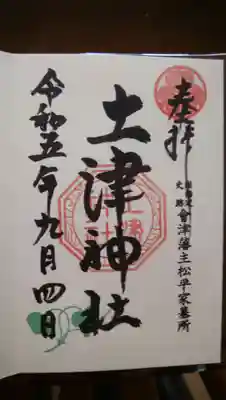 奉拝
史跡
會津藩主松平家墓所
土津神社
令和五年九月四日